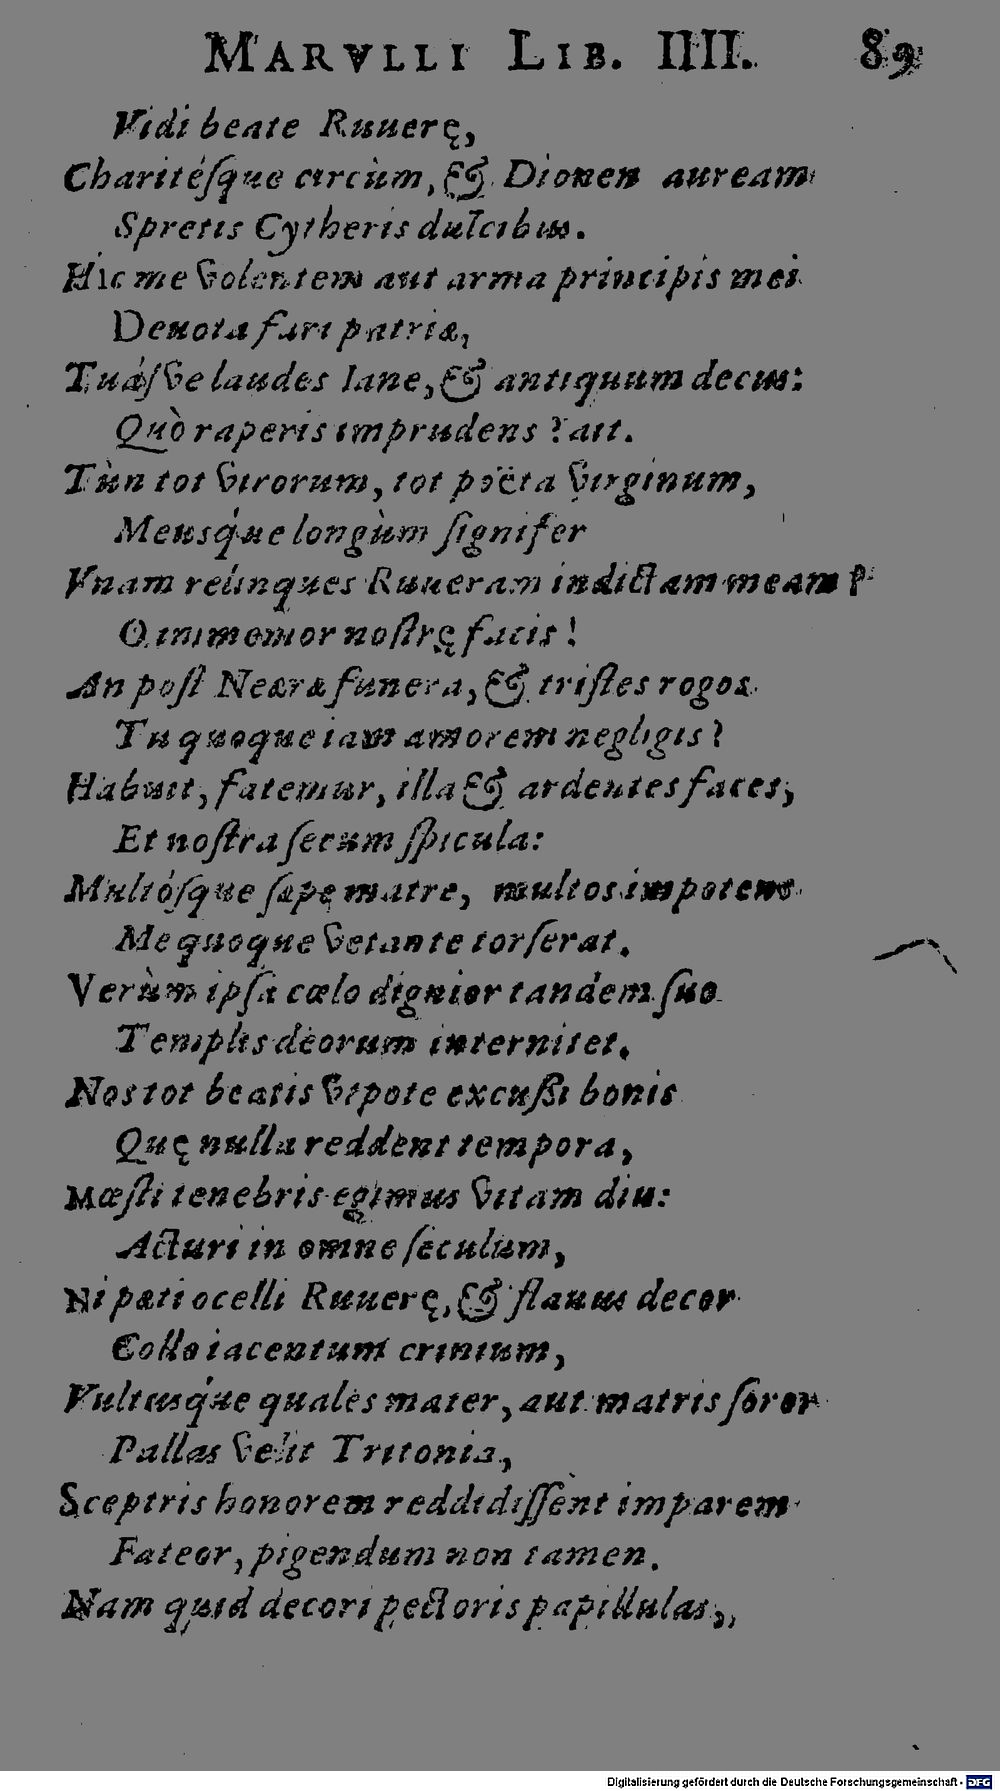 MARVLLI LIB. IIII. 89
Vidi beate Ruuerę,
Charitésque circùm, & Dionen auream
Spretis Cytheris dulcibus.
Hic me volentem aut arma principis mei
Deuota fari patriæ,
Tuásve laudes Iane, & antiquum decus:
Quò raperis imprudens? ait.
Tùn tot virorum, tot poëta virginum,
Meusq́ue longùm signifer
Vnam relinques Ruueram indictam meam?
O immemor nostrę facis!
An post Neæræ funera, & tristes rogos
Tu quoque iam amorem negligis?
Habuit, fatemur, illa & ardentes faces,
Et nostra secum spicula:
Multósque sæpe matre, multos impotens
Me quoque vetante torserat.
Verùm ipsa cœlo dignior tandem suo
Templis deorum internitet.
Nos tot beatis vtpote excußi bonis
Quę nulla reddent tempora,
Mœsti tenebris egimus vitam diu:
Acturi in omne seculum,
Ni pæti ocelli Ruuerę, & flauus decor
Collo iacentum crinium,
Vultusq́ue quales mater, aut matris soror
Pallas velit Tritonia,
Sceptris honorem reddidissent imparem
Fateor, pigendum non tamen.
Nam quid decori pectoris papillulas,
Digitalisierung gefördert durch die Deutsche Forschungsgemeinschaft - DFG